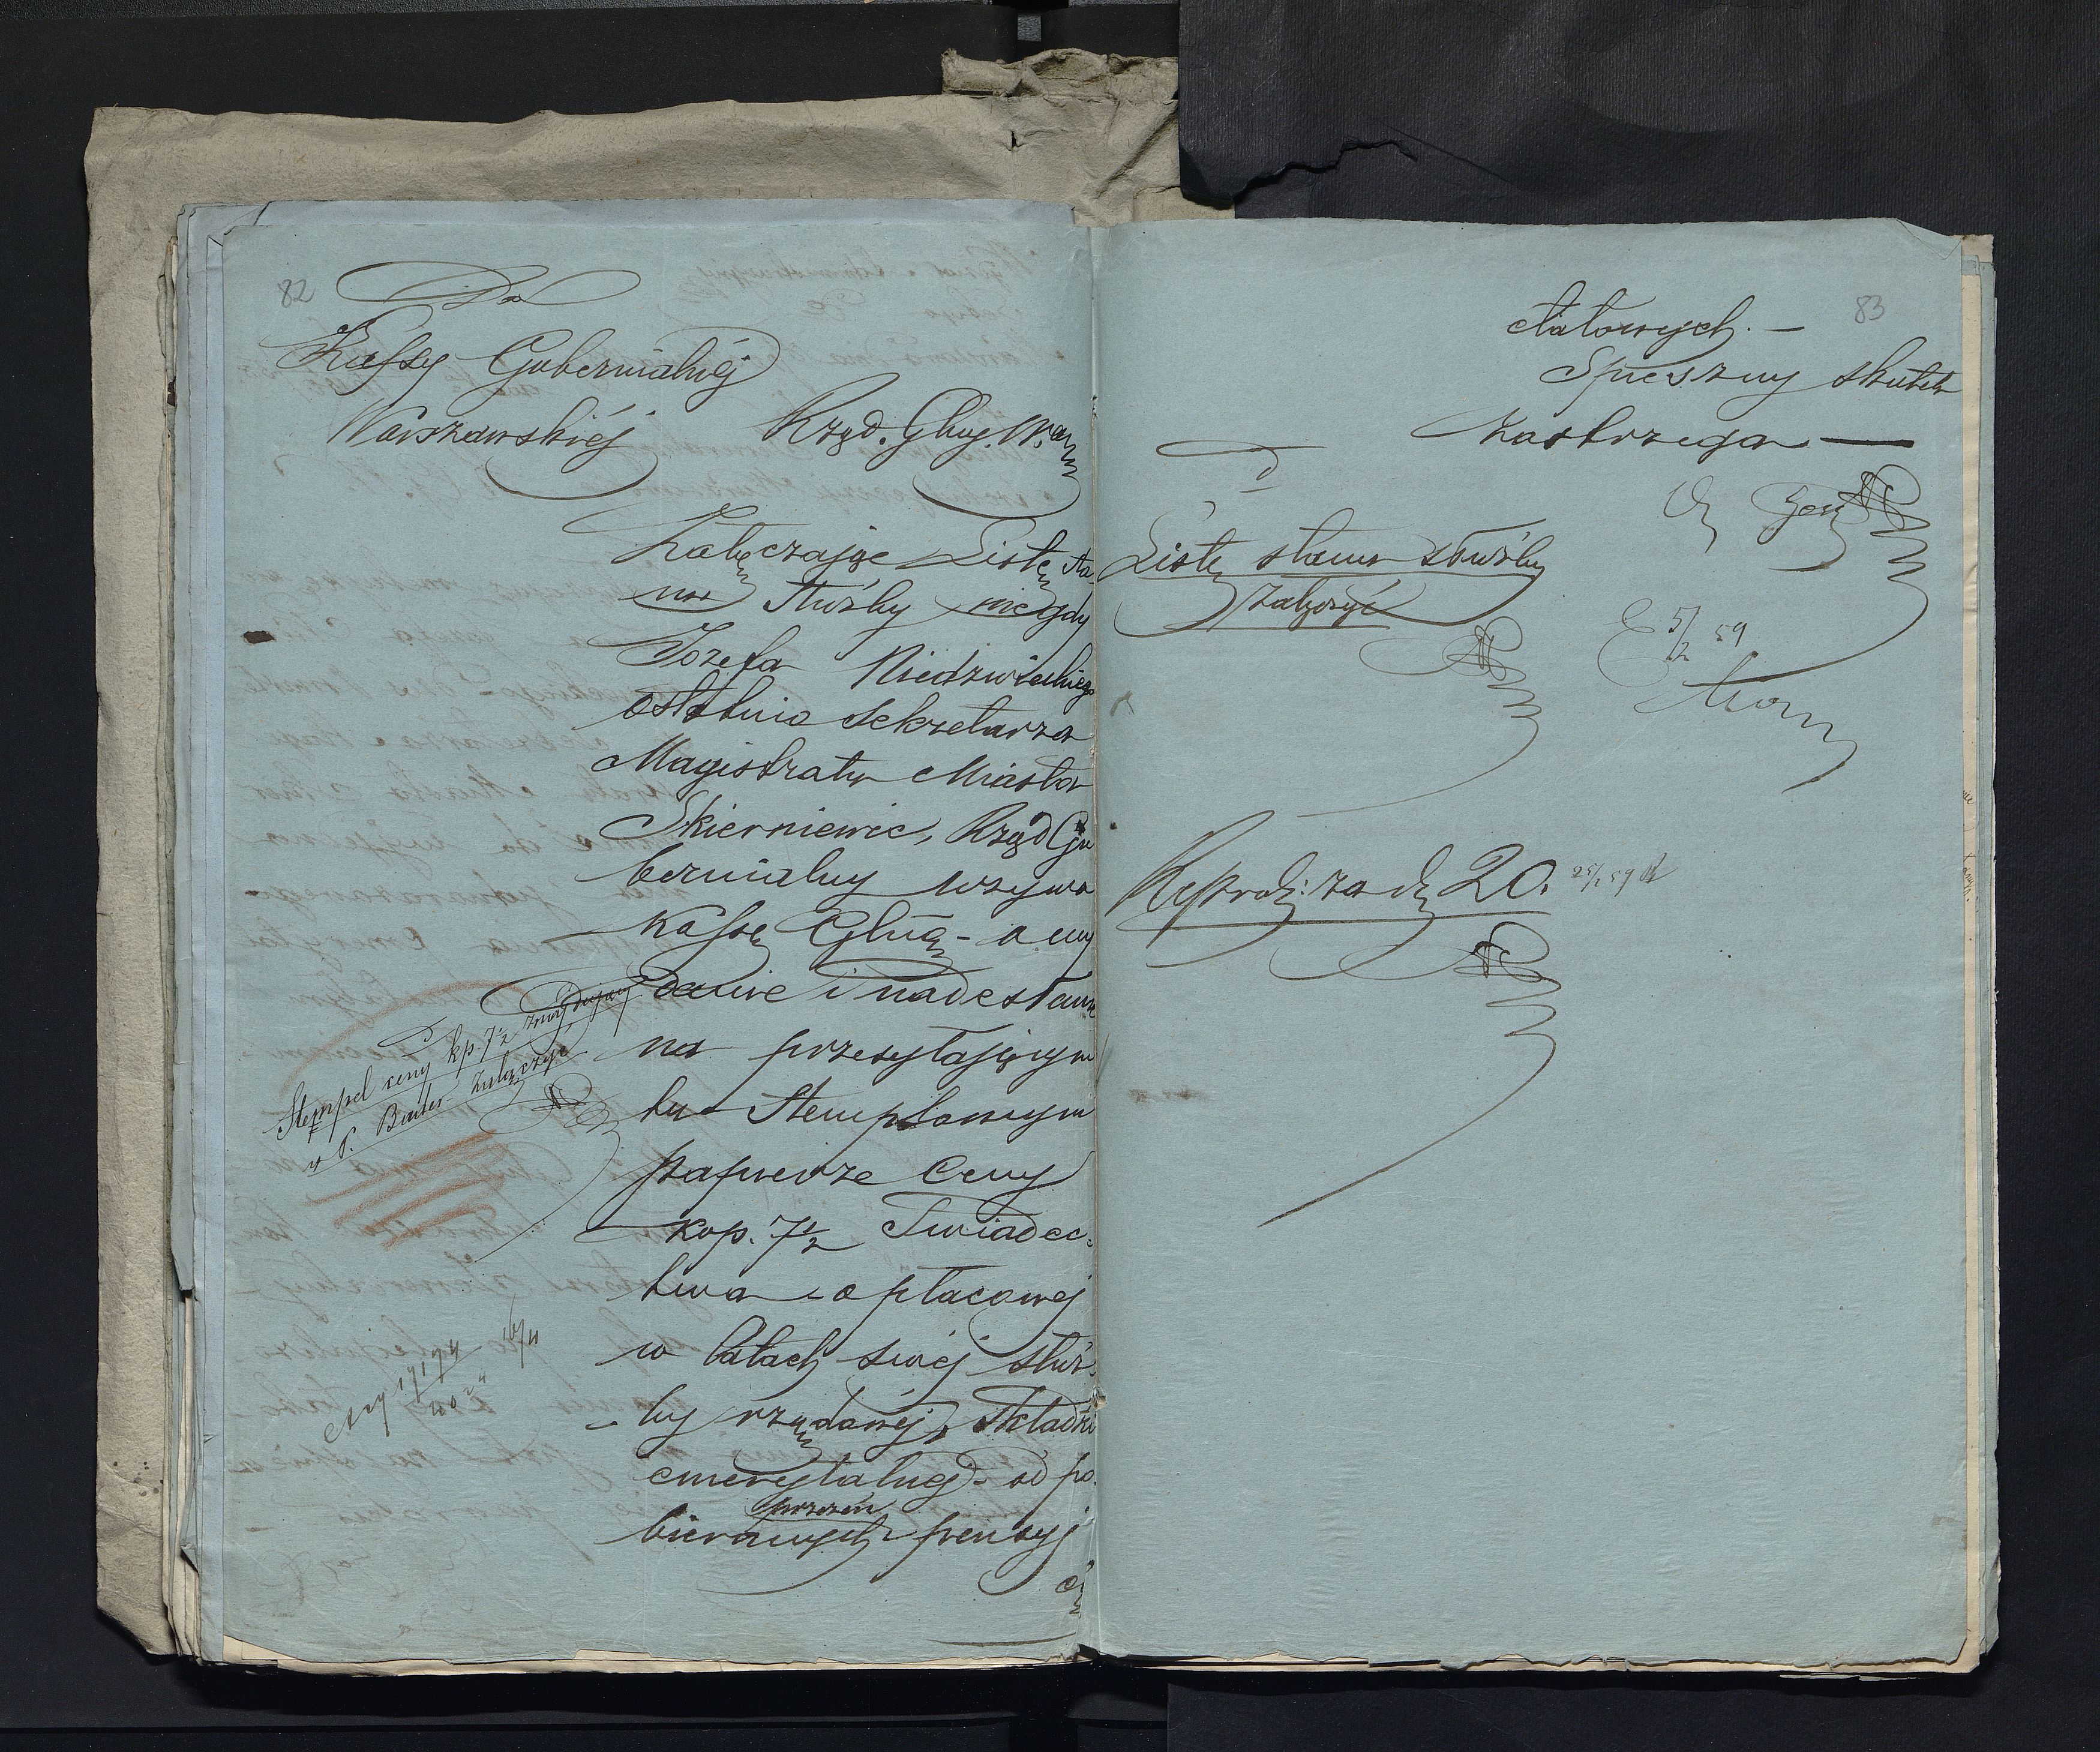 82
Do
Kassy Gubernialnéj
Warszawskiéj
Rząd. Gbny. W.
Załączając Listę sta
nu służby niegdy
Józefa Niedzwieckiego
ostatnio Sekretarza
Magistratu Miasta
Skierniewic, Rząd Gu
bernialny wzywa
Kassę Gbną - o wy
danie i nadesłanie
na przesyłającym
tu Stemplowym
papierze Ceny
kop. 7½ Swiadec
twa - opłaconej
w latach swéj służ
by rządowéj, składki
emerytalnej - od po
bieranych przezeń pensyj
Stempel ceny kp. 7½ znajdujący
w P. Biurze załączyć
16/11
83
etatowych. -
Spieszny skutek
zastrzega -
D
Listę stanu służby
załączyć
5/2 59
Reprod: za d. 20. 25/2 59